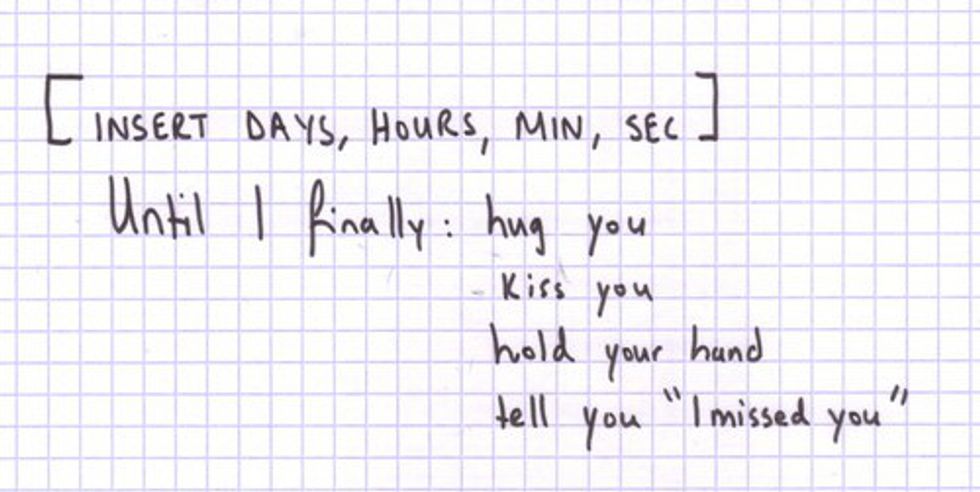 [INSERT DAYS, HOURS, MIN, SEC]
Until I finally: hug you
Kiss you
hold your hand
tell you "I missed you"